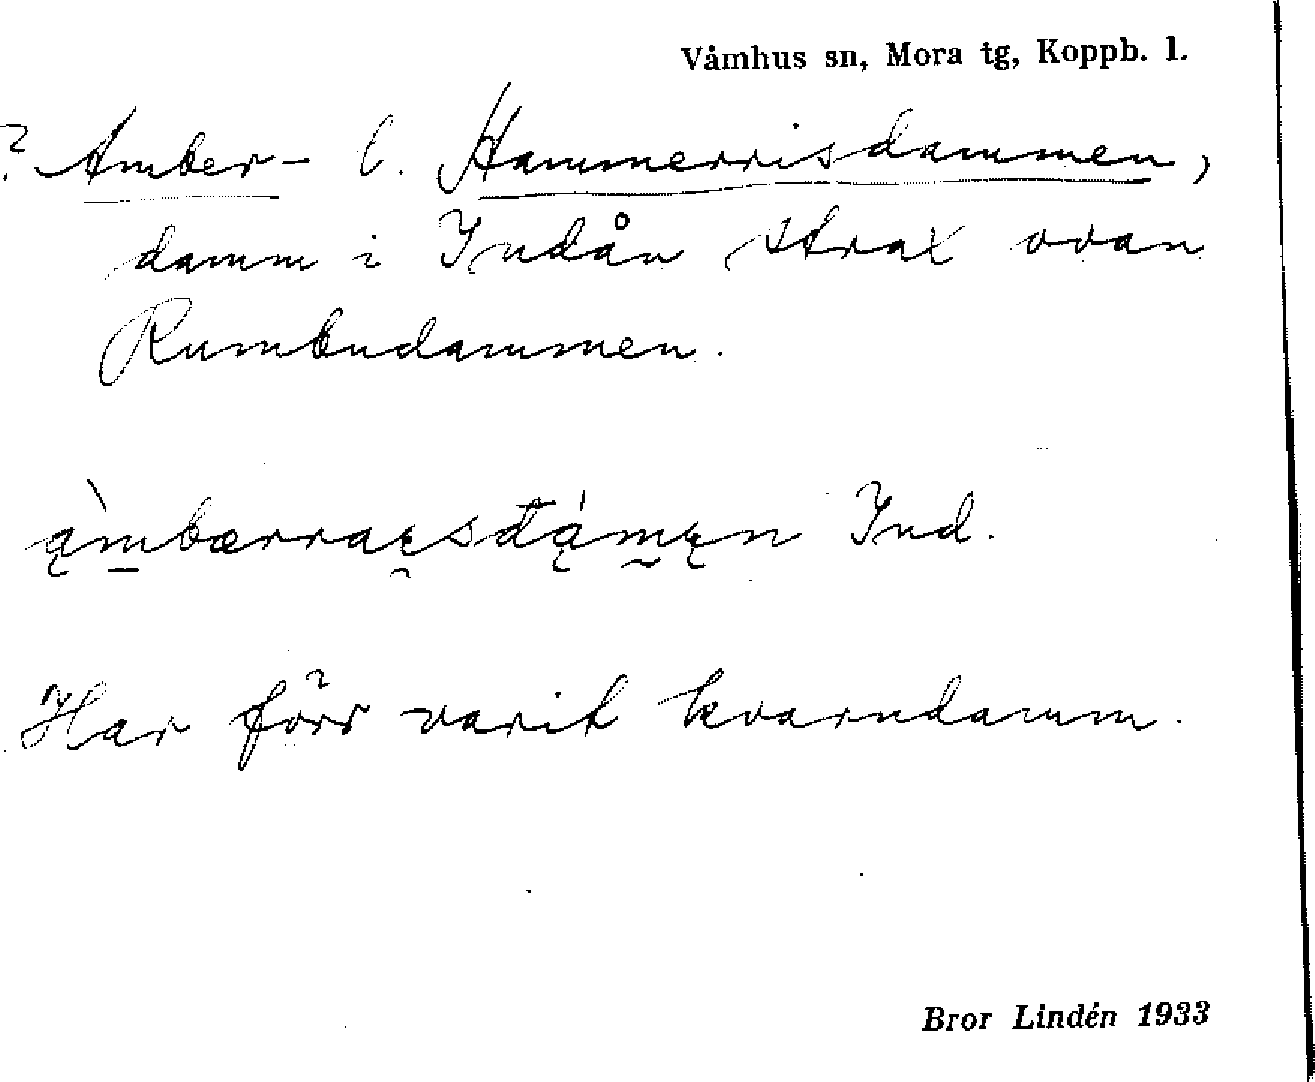 Våmhus sn, Mora tg, Koppb. l.
? Amber- l. Hammerrisdammen,
damm i Indån strax ovan
Rumbudammen.
Ind.
Har förr varit kvarndamm.
Bror Lindén 1933